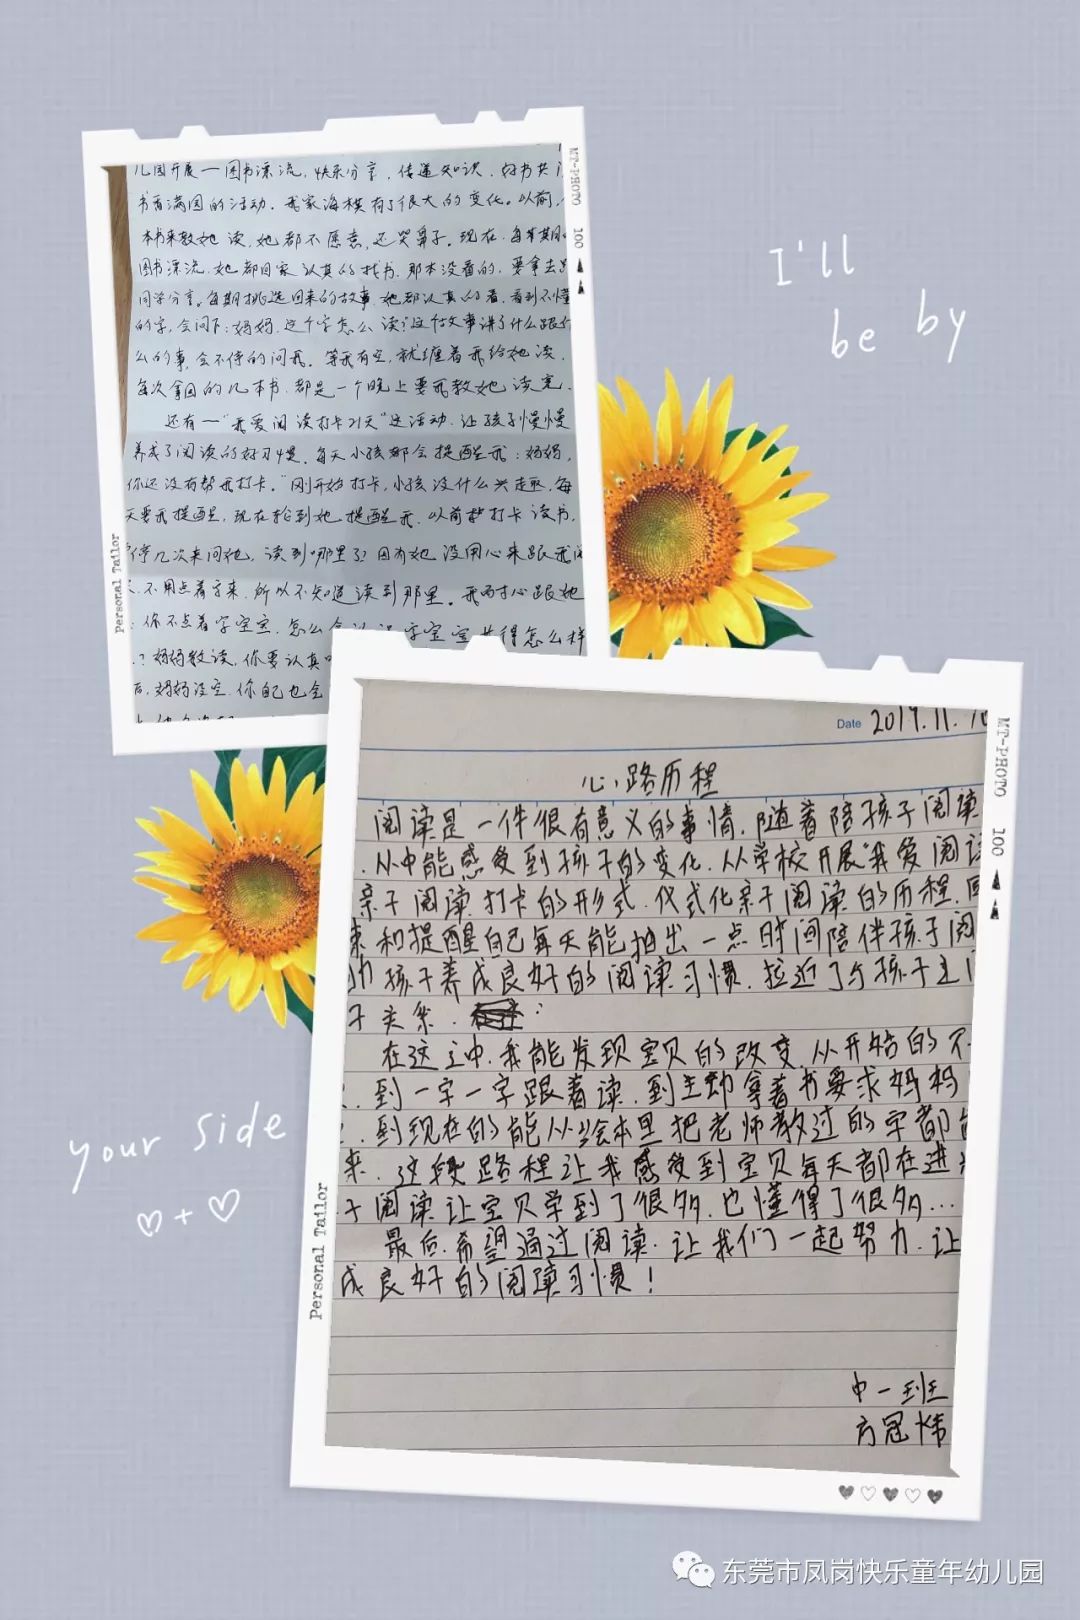 几园开展一图书漂流，快乐分享，传递知识，好书共
书香满园的活动，我家海棋有了很大的变化。以前，
本书来教她读，她都不愿意，还哭鼻子。现在，每星期
图书漂流，她都回家认真的找书，那本没看的，要拿去
同学分享。每期挑选回来的故事，她都认真的看，看到不懂
的字，会问下：妈妈，这个字怎么读？这个故事讲了什么跟什
么的事，会不停的问我。等我有空，就缠着我给她读，
每次拿回的几本书，都是一个晚上要我教她读完。
还有一“我爱阅读打卡21天”这活动，让孩子慢慢
养成了阅读的好习惯。每天小孩都会提醒我：妈妈，
你还没有帮我打卡。”刚开始打卡，小孩没什么兴趣，每
天要我提醒，现在轮到她提醒我。以前打卡读书，
停几次来问他，读到哪里了？因有她没用心来跟我
不用点着字来，所以不知道读到那里。我耐心跟她
：你不点着字宝宝，怎么会认识字宝宝长得怎么样
？妈妈教读，你要认真
后，妈妈没空，你自己也会
MT-PHOTO 100
Personal Tailor
I'll
be by
Date 2019.11.
心路历程
阅读是一件很有意义的事情，随着陪孩子阅读
，从中能感受到孩子的变化，从学校开展“我爱阅读
亲子阅读打卡的形式，仪式化亲子阅读的历程，
来和提醒自己每天能抽出一点时间陪伴孩子阅
助孩子养成良好的阅读习惯，拉近了与孩子之间
子关系：
在这之中，我能发现宝贝的改变，从开始的不
，到一字一字跟着读，到主动拿着书要求妈妈
，到现在的能从绘本里把老师教过的字都
来，这段路程让我感受到宝贝每天都在进
子阅读让宝贝学到了很多，也懂得了很多…
最后，希望通过阅读，让我们一起努力，让
成良好的阅读习惯！
中一班
方冠炜
MT-PHOTO 100
Personal Tailor
your side
东莞市凤岗快乐童年幼儿园